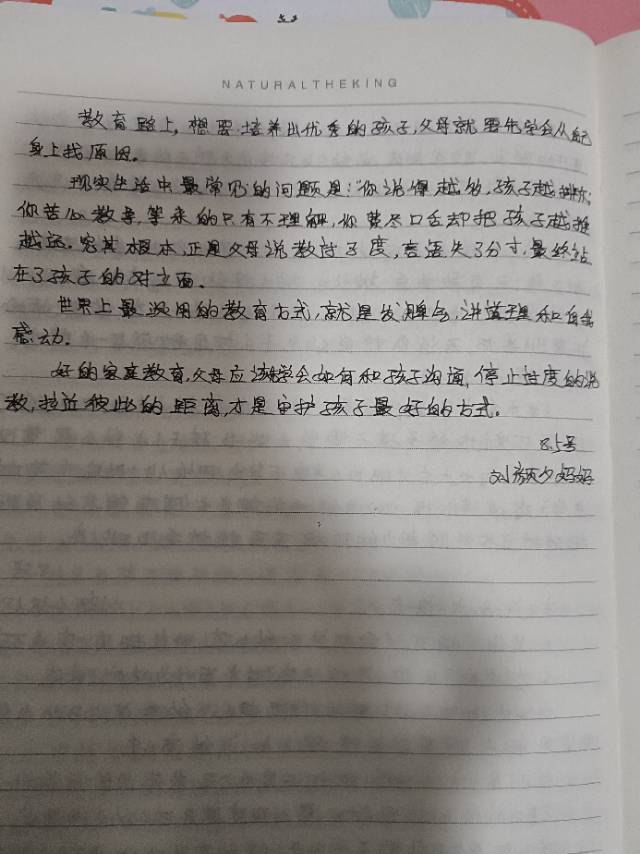 NATURALTHEKING
教育路上,想要培养出优秀的孩子,父母就要先学会从自己
身上找原因。
现实生活中最常见的问题是:你说得越多,孩子越排斥;
你苦心教导,等来的只有不理解,你费尽口舌却把孩子越推
越远。究其根本,正是父母说教过了度,言语失了分寸,最终站
在了孩子的对立面。
世界上最没用的教育方式,就是发脾气,讲道理和自我
感动。
好的家庭教育,父母应该学会如何和孩子沟通,停止过度的说
教,拉近彼此的距离,才是守护孩子最好的方式。
8.5号
刘颜夕妈妈